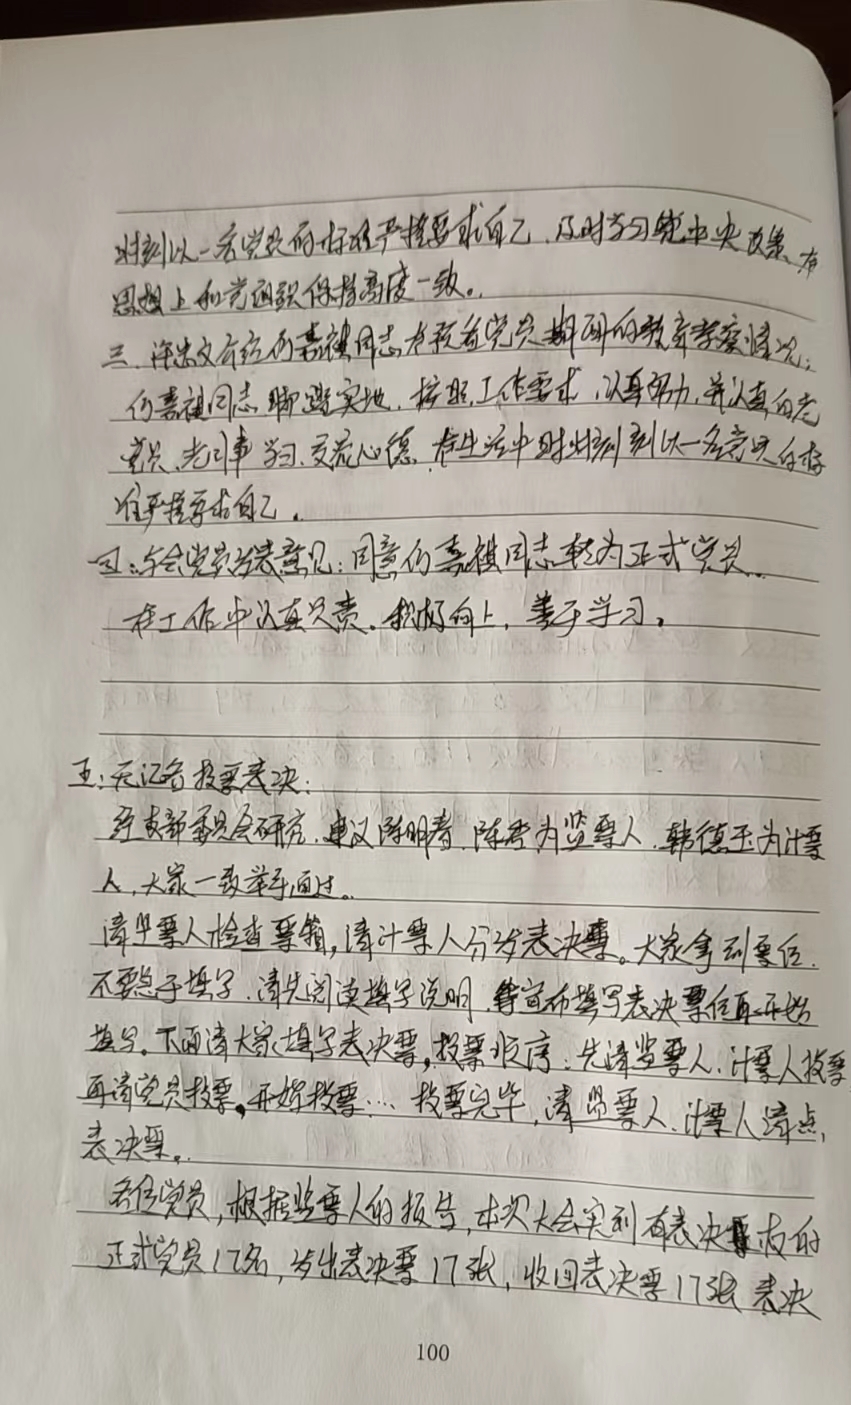 时刻以一名党员的标准严格要求自己、及时学习党中央政策、在
思想上和党组织保持高度一致。
三、许忠文介绍仍嘉祺同志在预备党员期间的教育考察情况：
仍嘉祺同志脚踏实地、按照工作要求、认真努力、并认真向老
党员、老同事学习、交流心德、在生活中时时刻刻以一名党员的标
准严格要求自己。
四：与会党员发表意见：同意仍嘉祺同志转为正式党员。
在工作中认真负责、积极向上，善于学习。
五：无记名投票表决：
经支部委员会研究、建议陈明春、陈 为监票人、韩德玉为计票
人，大家一致举手通过。
请监票人检查票箱，请计票人分发表决票。大家拿到票后、
不要急于填写、请先阅读填写说明、等宣布填写表决票后再开始
填写。下面请大家填写表决票，投票顺序：先请监票人、计票人投票
再请党员投票，开始投票… 投票完毕，请监票人、计票人清点
表决票。
各位党员，根据监票人的报告，本次大会实到有表决权的
正式党员17名，发出表决票17张，收回表决票17张 表决
100